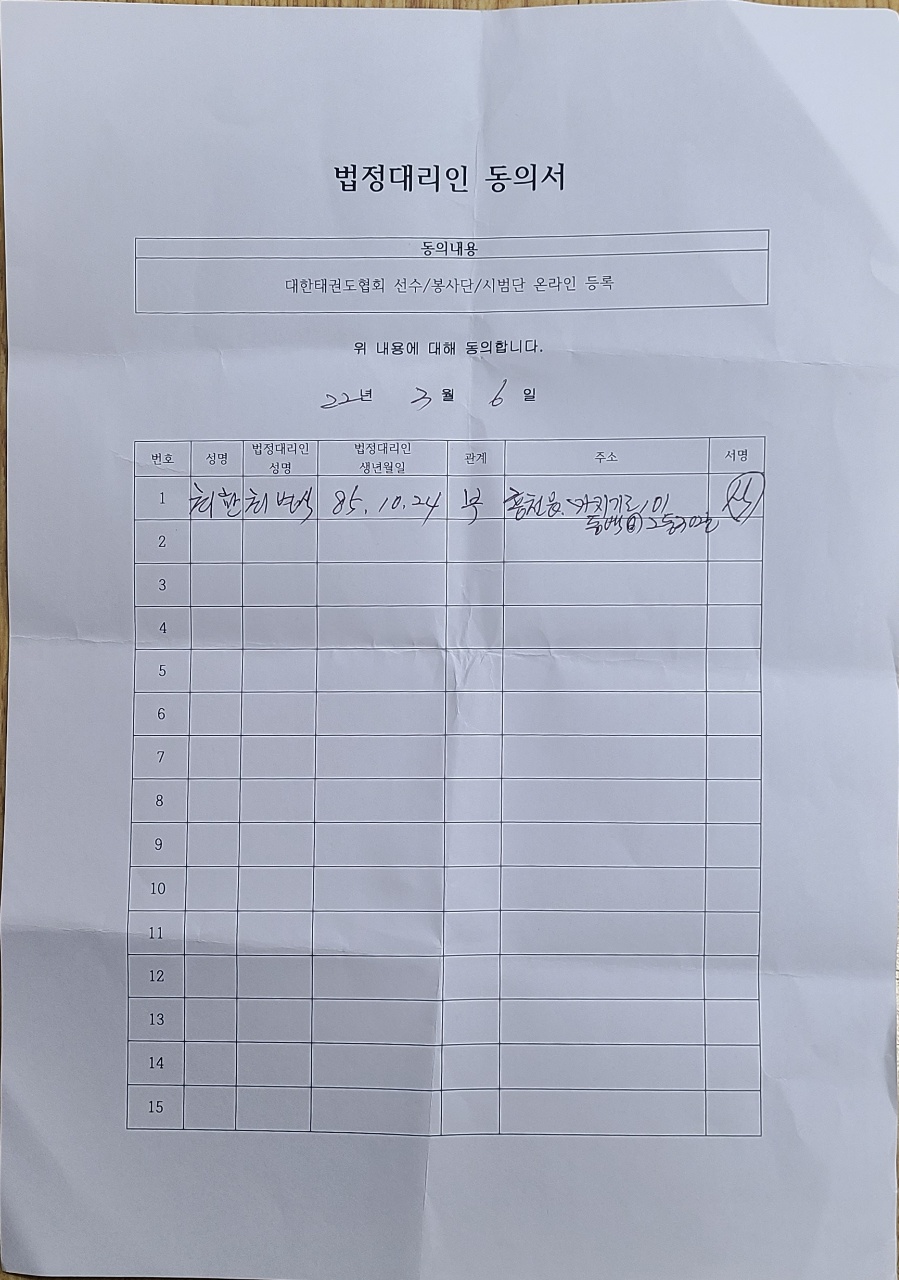 법정대리인 동의서
동의내용
대한태권도협회 선수/봉사단/시범단 온라인 등록
위 내용에 대해 동의합니다.
22년 3월 6일
번호 성명 법정대리인 성명 법정대리인 생년월일 관계 주소 서명
1 최한 최범석 85.10.24 부 홍천읍
2
3
4
5
6
7
8
9
10
11
12
13
14
15